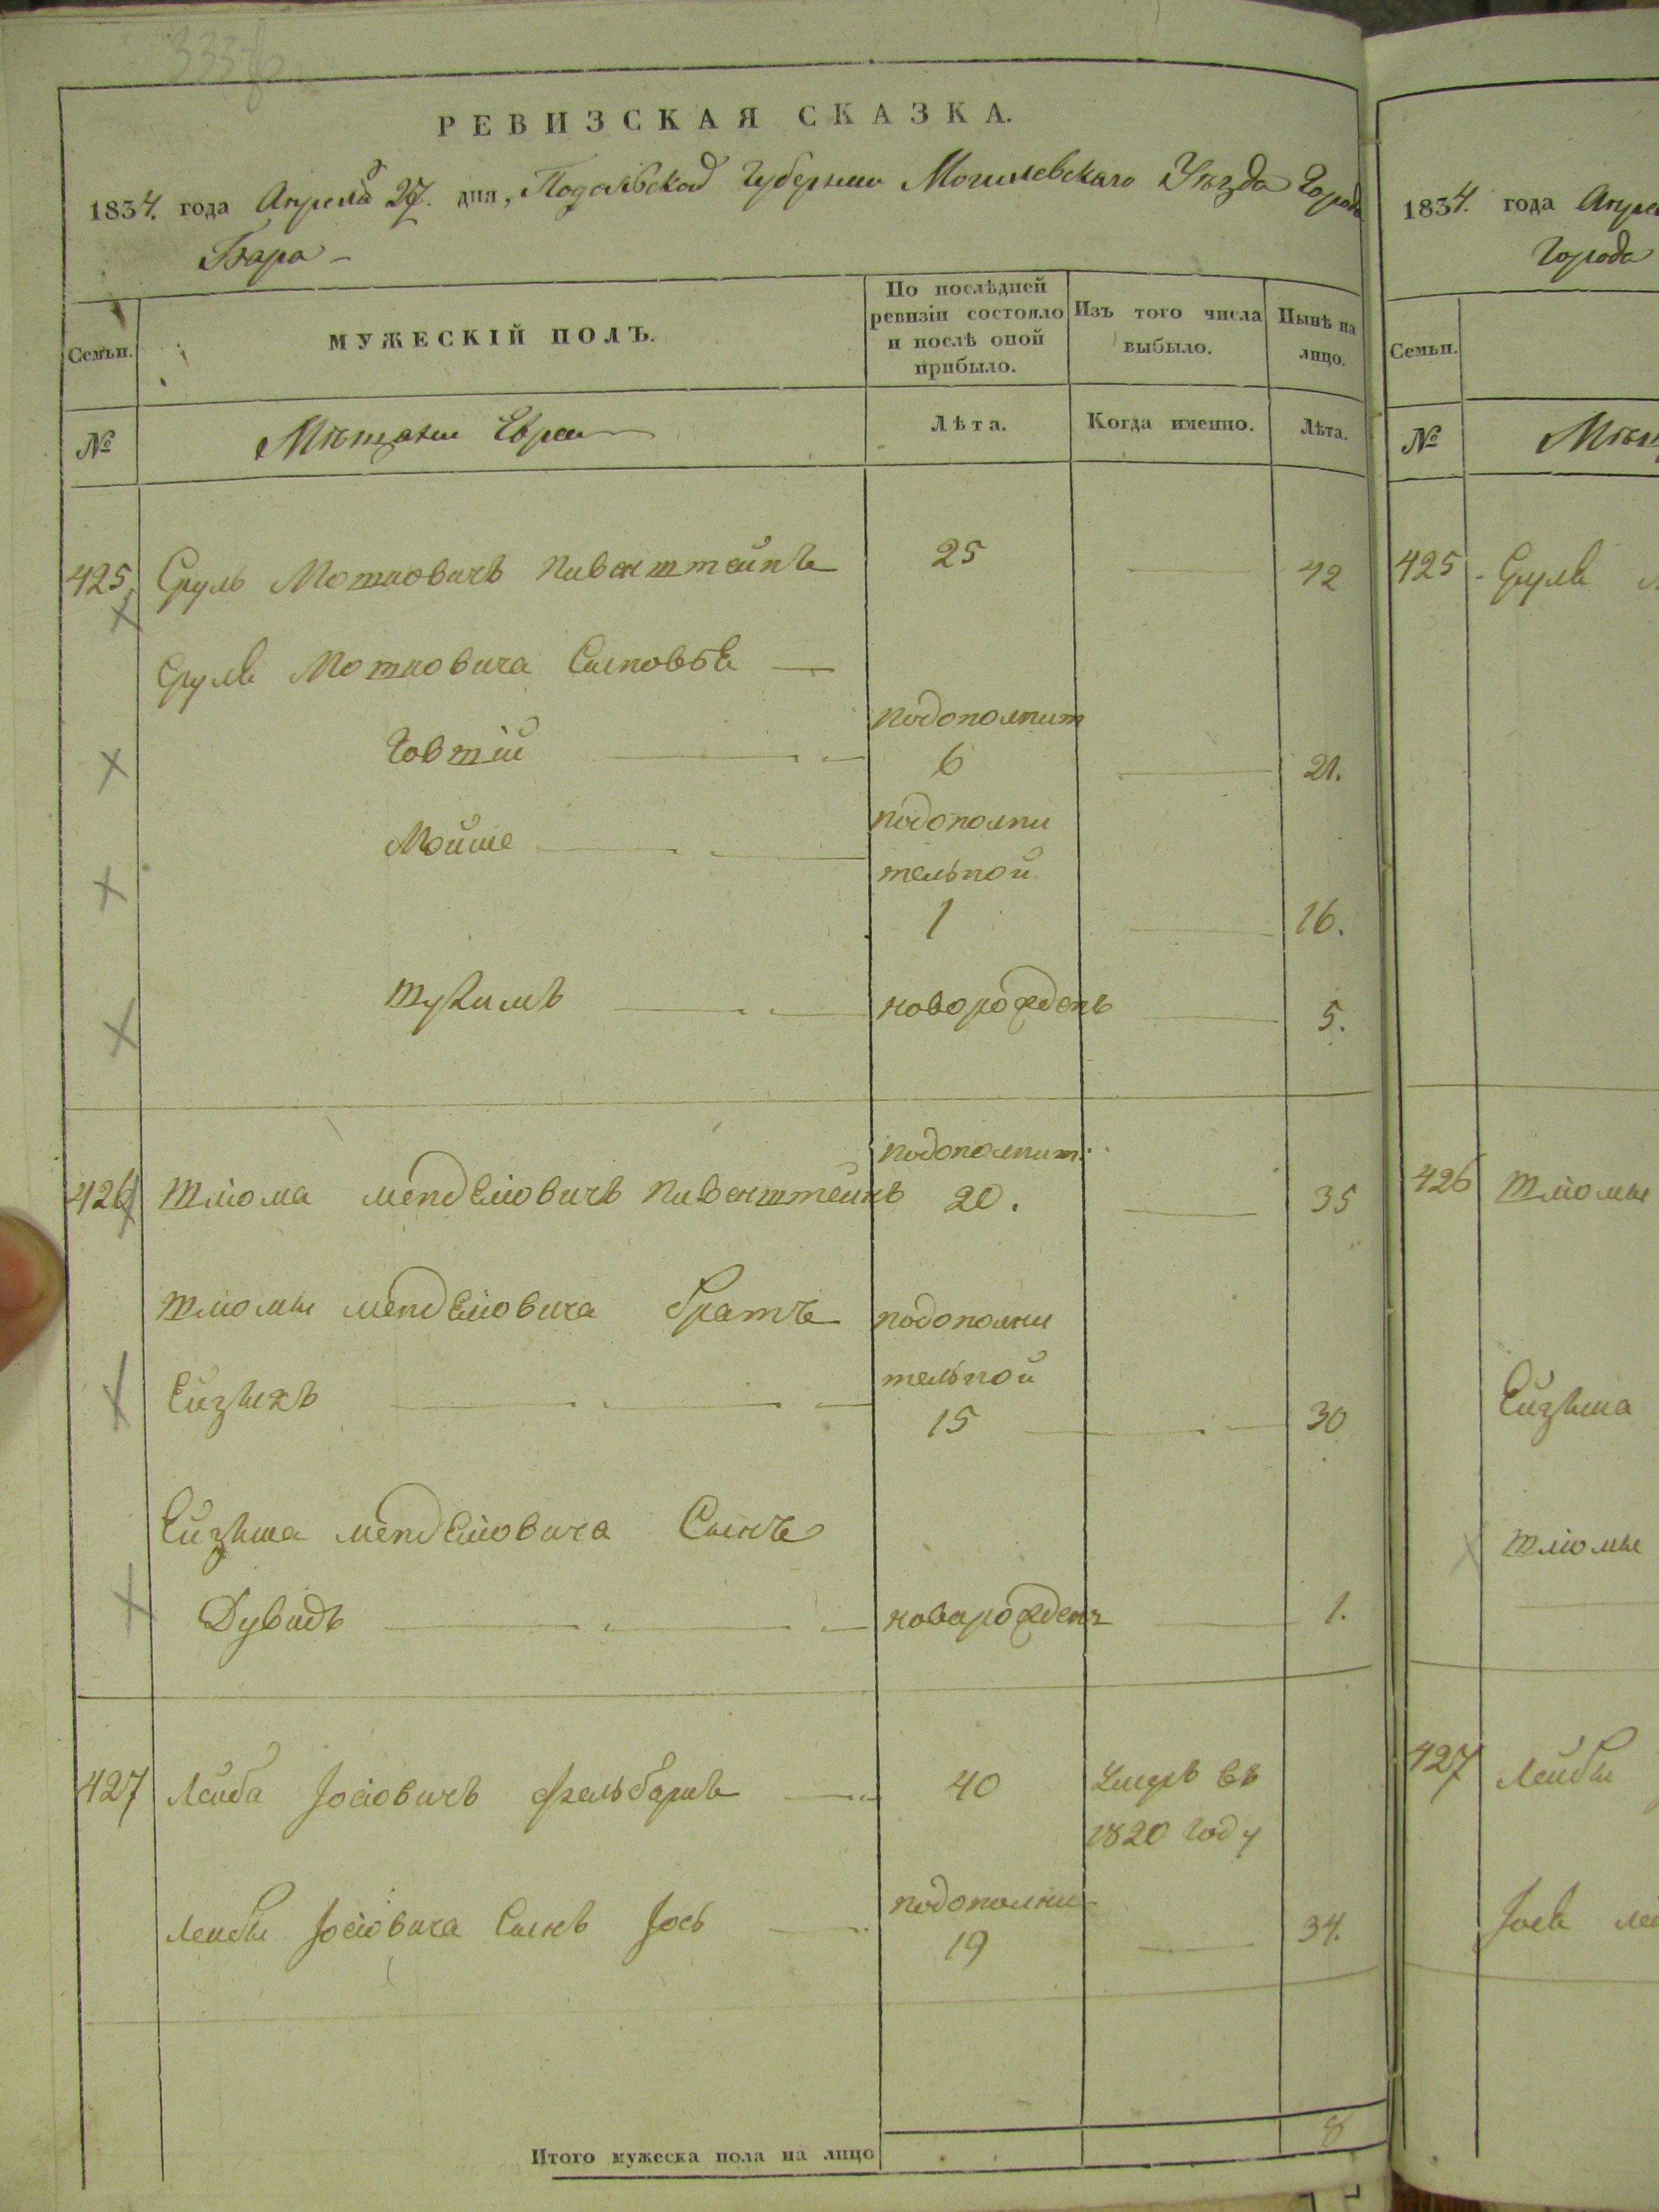 РЕВИЗСКАЯ СКАЗКА.
1834. года Апреля 27. дня, Подольской Губернии Могилевскаго Уѣзда Города
Бара
Семьи.
МУЖЕСКІЙ ПОЛЪ.
По послѣдней ревизіи состояло и послѣ оной прибыло.
Изъ того числа выбыло.
Нынѣ на лицо.
№
Мѣщане Евреи
Лѣта.
Когда именно.
Лѣта.
425 Сруль Мотиовичъ 25 42
Сруля Мотиовича Сыновья
подополнит
6 21.
Мойше подополни
тельной
1 16.
новорожденъ 5.
подополнит.
426 Шлiома Менделiовичъ 20. 35
Шлiомы Менделiовича братъ подополни
тельной
15 30
Менделiовича Сынъ
Дувидъ новорожденъ 1.
427 Лейба Iосiовичъ 40 Умеръ въ
1820 году
Лейбы Iосiовича Сынъ Iось подополни
19 34.
Итого мужеска пола на лицо 8
1834. года
Города
Семьи.
№
425 Сруля
426 Шлiомы
Шлiомы
427 Лейбы